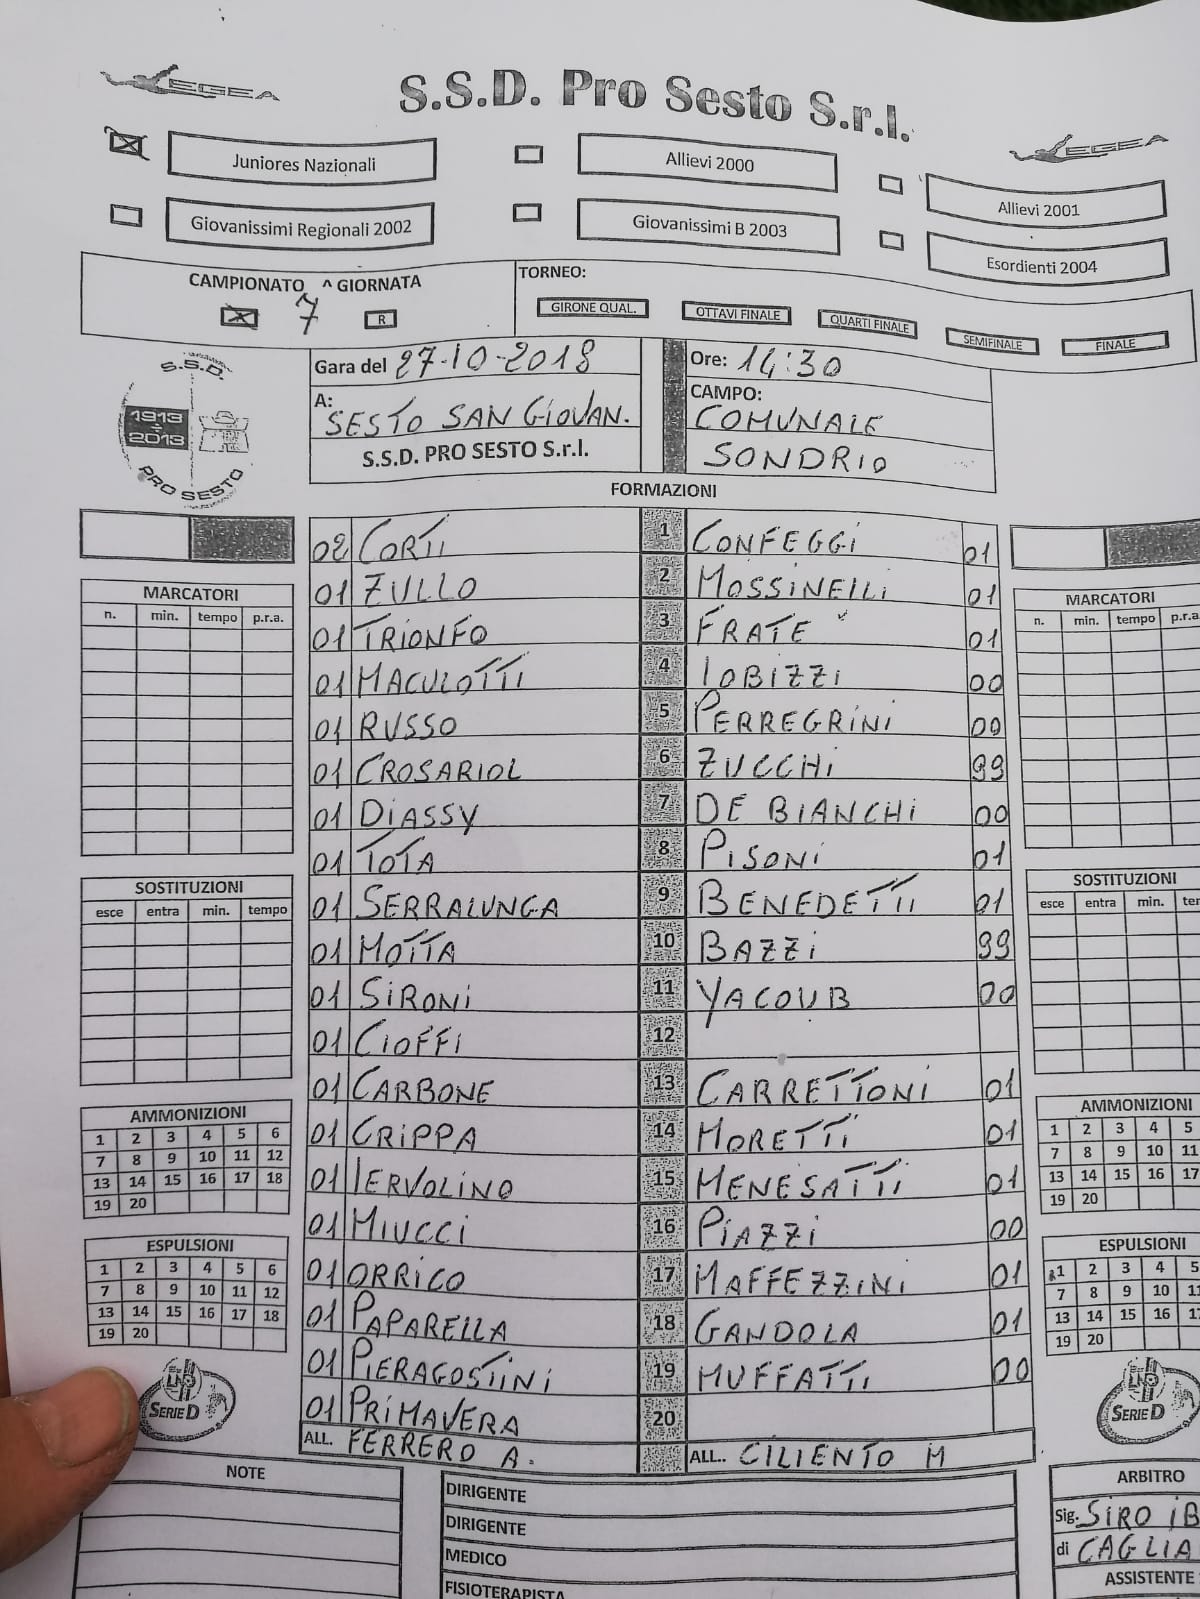 LEGEA
S.S.D. Pro Sesto S.r.l.
LEGEA
Juniores Nazionali
Allievi 2000
Allievi 2001
Giovanissimi Regionali 2002
Giovanissimi B 2003
Esordienti 2004
CAMPIONATO ^ GIORNATA
7 R
TORNEO:
GIRONE QUAL. OTTAVI FINALE QUARTI FINALE SEMIFINALE FINALE
S.S.D.
1913
÷
2013
PRO SESTO
Gara del 27-10-2018
Ore: 14:30
A:
SESTO SAN GIOVAN.
CAMPO:
COMUNALE
S.S.D. PRO SESTO S.r.l.
SONDRIO
FORMAZIONI
02 CORTI 1 CONFEGGI 01
01 ZULLO 2 MOSSINELLI 01
01 TRIONFO 3 FRATE 01
01 MACULOTTI 4 IOBIZZI 00
01 RUSSO 5 PERREGRINI 00
01 CROSARIOL 6 ZUCCHI 99
01 DIASSY 7 DE BIANCHI 00
01 TOTA 8 PISONI 01
01 SERRALUNGA 9 BENEDETTI 01
01 MOTTA 10 BAZZI 99
01 SIRONI 11 YACOUB 00
01 CIOFFI 12
01 CARBONE 13 CARRETTONI 01
01 CRIPPA 14 MORETTI 01
01 IERVOLINO 15 MENESATTI 01
01 MIUCCI 16 PIAZZI 00
01 ORRICO 17 MAFFEZZINI 01
01 PAPARELLA 18 GANDOLA 01
01 PIERAGOSTINI 19 MUFFATTI 00
01 PRIMAVERA 20
ALL. FERRERO A.
ALL.. CILIENTO M
MARCATORI
n. min. tempo p.r.a.
SOSTITUZIONI
esce entra min. tempo
AMMONIZIONI
1 2 3 4 5 6
7 8 9 10 11 12
13 14 15 16 17 18
19 20
ESPULSIONI
1 2 3 4 5 6
7 8 9 10 11 12
13 14 15 16 17 18
19 20
LND
SERIE D
MARCATORI
n. min. tempo p.r.a.
SOSTITUZIONI
esce entra min.
AMMONIZIONI
1 2 3 4 5
7 8 9 10 11
13 14 15 16
19 20
ESPULSIONI
1 2 3 4 5
7 8 9 10
13 14 15 16
19 20
LND
SERIE D
NOTE
DIRIGENTE
DIRIGENTE
MEDICO
FISIOTERAPISTA
ARBITRO
Sig. SIRO
di
ASSISTENTE